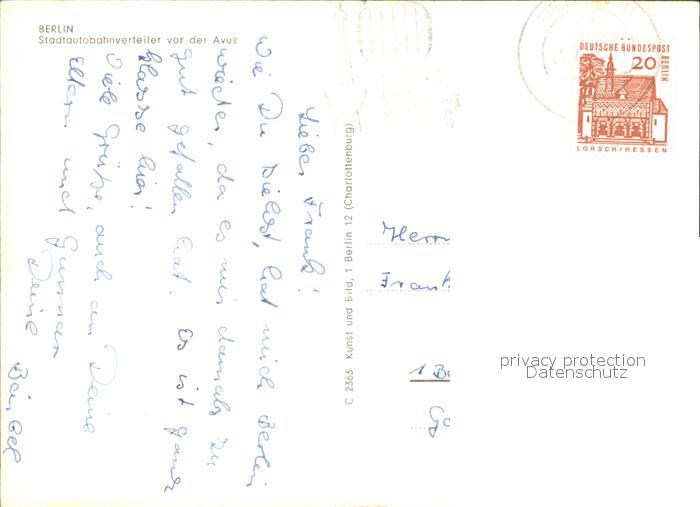 BERLIN
Stadtautobahnverteiler vor der Avus
Lieber Frank!
Wie Du siehst, hat mich Berlin
wieder, da es mir damals zu
gut gefallen hat. Es ist ganz
klasse hier!
Viele Grüße, auch an Deine
Eltern und Gunnar
Deine
Bärbel
C 2363 Kunst und Bild, 1 Berlin 12 (Charlottenburg)
DEUTSCHE BUNDESPOST
BERLIN
20
LORSCH/HESSEN
Herrn
Frank
1 B
privacy protection
Datenschutz